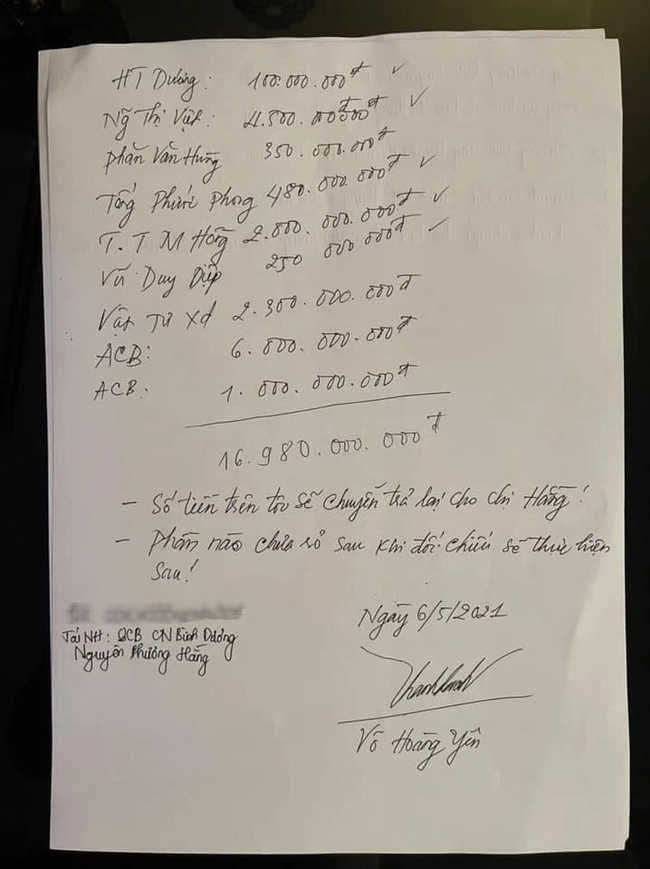 HT Dương: 100.000.000đ ✓
Ng̃ Thị Việt: 4.500.000.000đ ✓
Phan Văn Hùng 350.000.000đ
Tống Phước Phong 480.000.000đ ✓
T.T M Hồng 2.000.000.000đ ✓
Vũ Duy Diệp 250 000 000đ ✓
Vật Tư Xd 2.300.000.000đ
ACB: 6.000.000.000đ
ACB: 1.000.000.000đ
16.980.000.000đ
- Số tiền trên tôi sẽ chuyển trả lại cho chị Hằng!
- Phần nào chưa rỏ sau khi đối chiếu sẽ thực hiện
sau!
Ngày 6/5/2021
Tại NH: CN Bình Dương
Nguyễn Phương Hằng
Võ Hoàng Yên